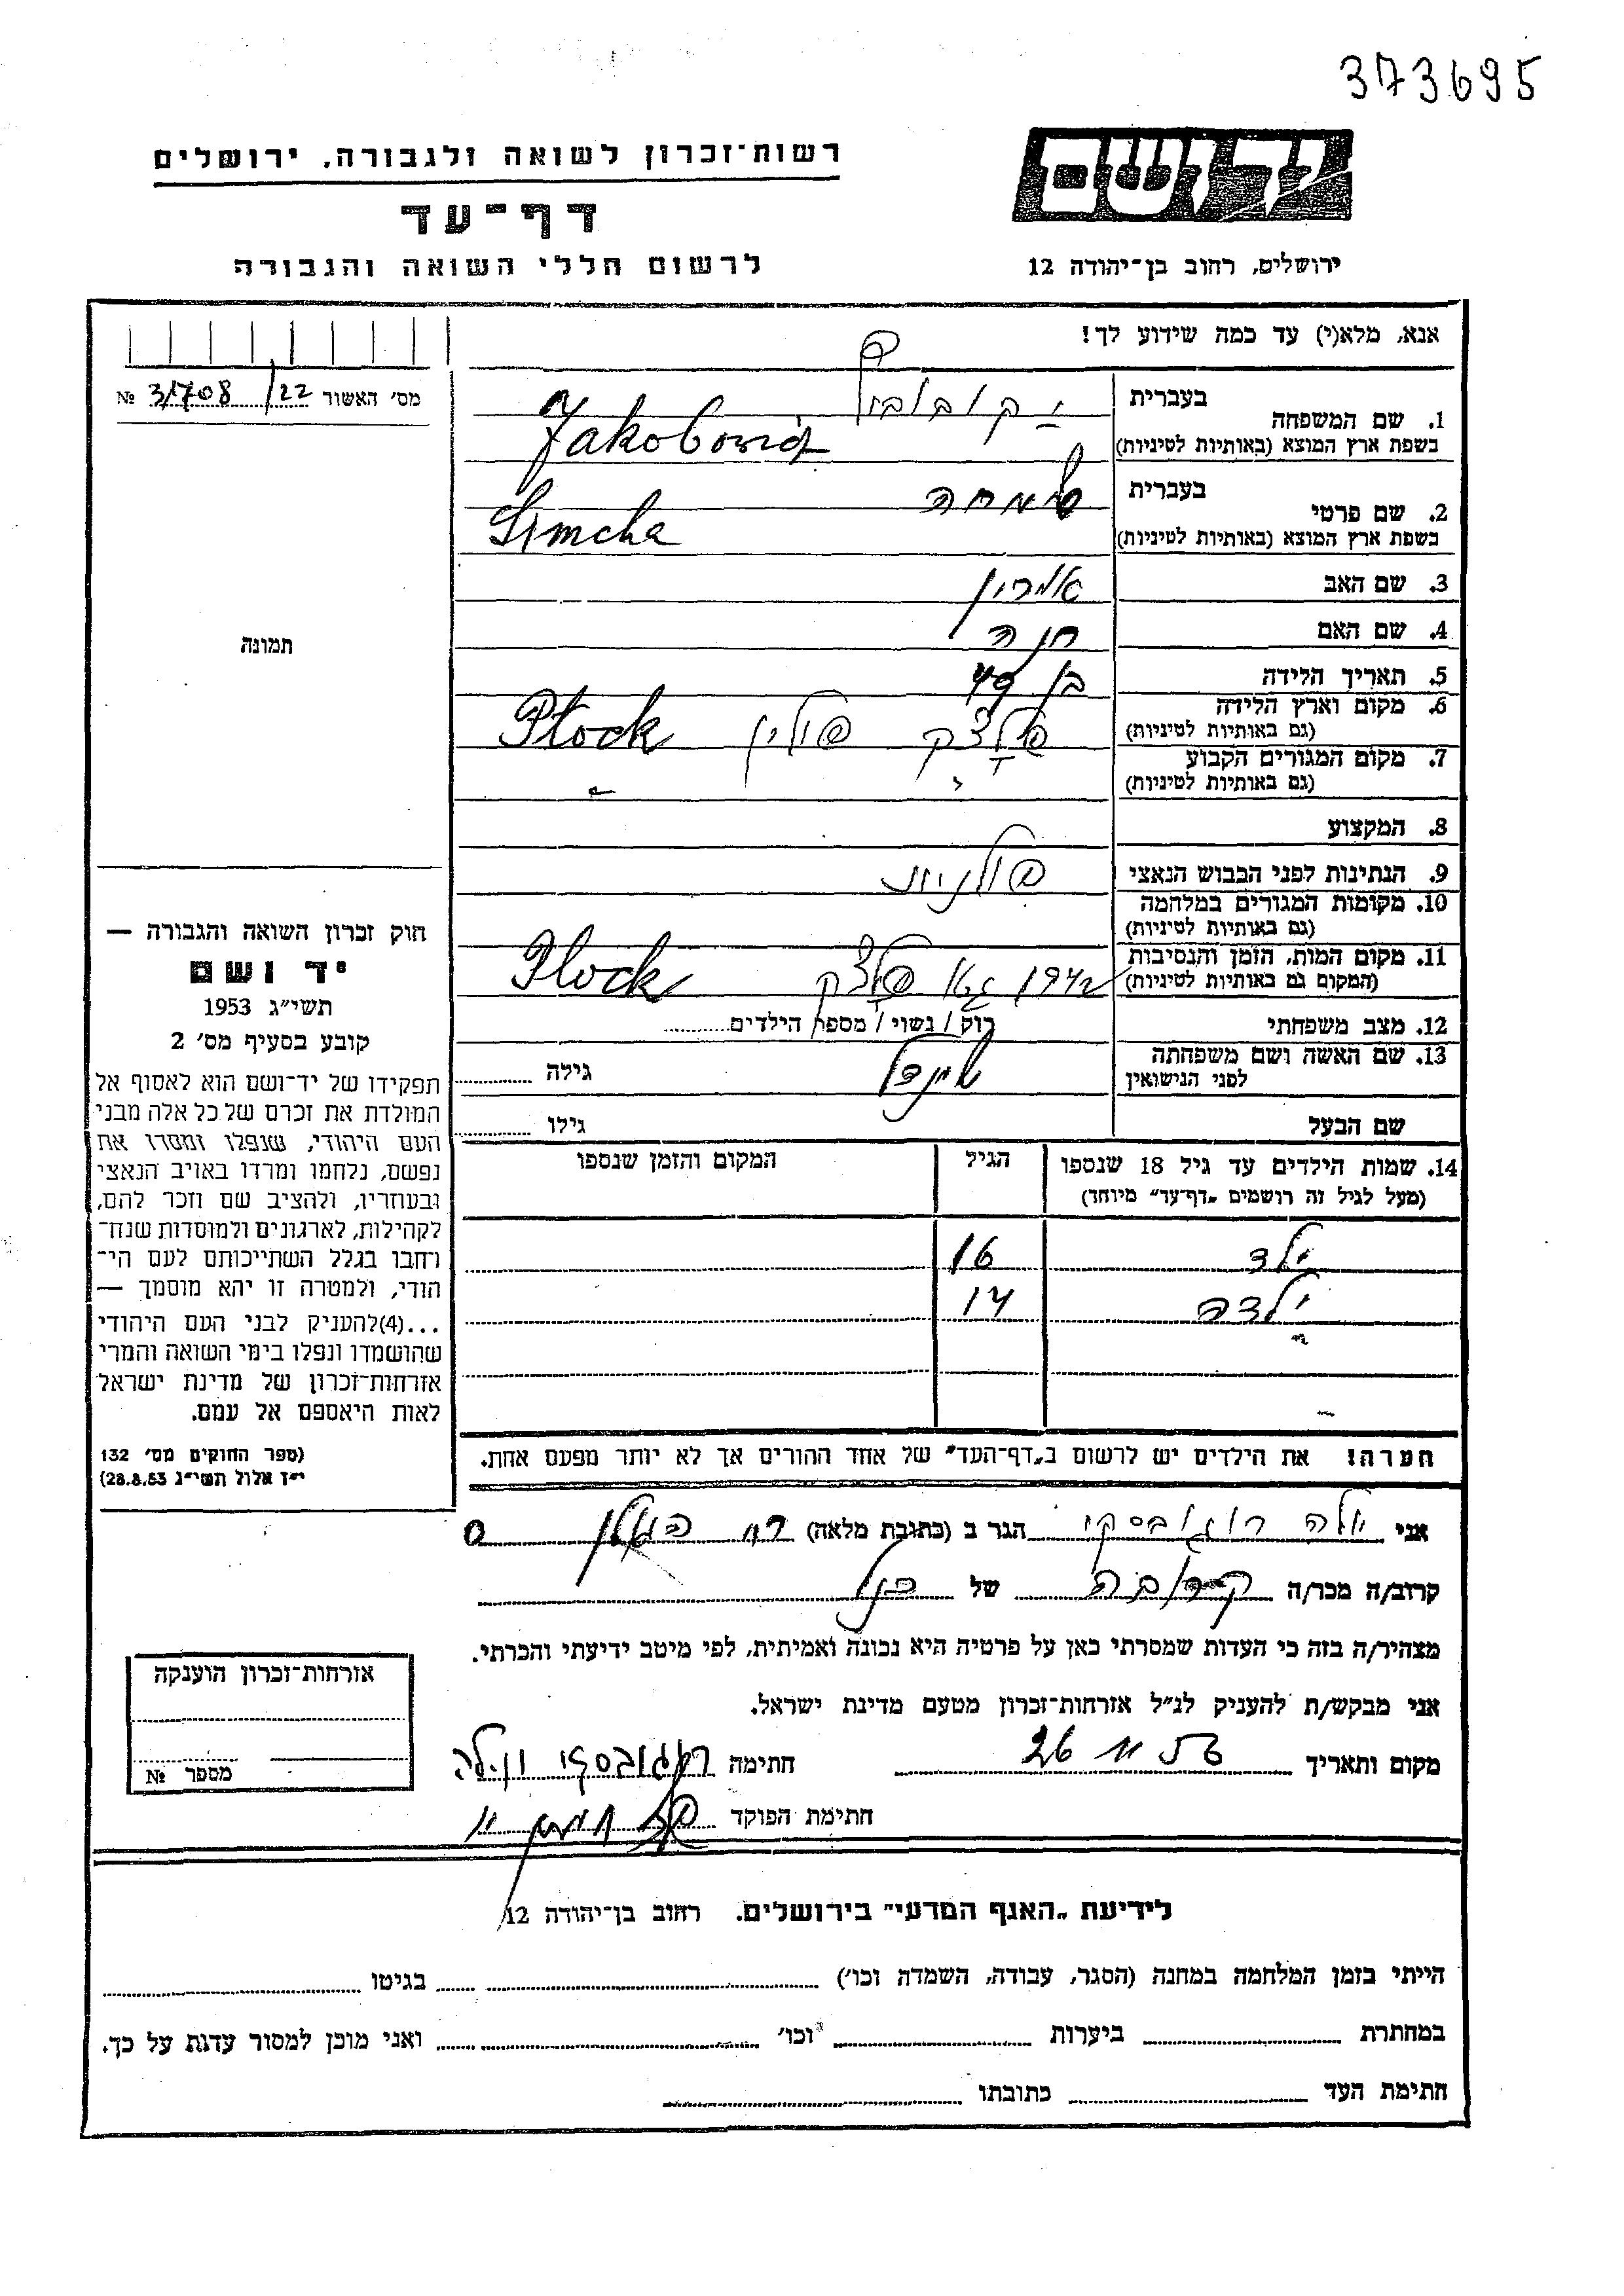 373695
יד ושם
ירושלים, רחוב בן־יהודה 12
רשות־זכרון לשואה ולגבורה, ירושלים
דף־עד
לרשום חללי השואה והגבורה
אנא, מלא(י) עד כמה שידוע לך!
מס׳ האשור 22/ 31708 №
תמונה
חוק זכרון השואה והגבורה —
יד ושם
תשי״ג 1953
קובע בסעיף מס׳ 2
תפקידו של יד־ושם הוא לאסוף אל
המולדת את זכרם של כל אלה מבני
העם היהודי, שנפלו ומסרו את
נפשם, נלחמו ומרדו באויב הנאצי
ובעוזריו, ולהציב שם וזכר להם,
לקהילות, לארגונים ולמוסדות שנח־
רחבו בגלל השתייכותם לעם הי־
הודי, ולמטרה זו יהא מוסמך —
...(4)להעניק לבני העם היהודי
שהושמדו ונפלו בימי השואה והמרי
אזרחות־זכרון של מדינת ישראל
לאות היאספם אל עמם.
(ספר החוקים מס׳ 132
י״ז אלול תשי״ג 28.8.53)
בעברית
1. שם המשפחה
בשפת ארץ המוצא (באותיות לטיניות) Jakobowicz
בעברית שימחה
2. שם פרטי
בשפת ארץ המוצא (באותיות לטיניות) Simcha
3. שם האב
4. שם האם חנה
5. תאריך הלידה בן 49
6. מקום וארץ הלידה פלצק פולין Plock
(גם באותיות לטיניות)
7. מקום המגורים הקבוע
(גם באותיות לטיניות)
8. המקצוע
9. הנתינות לפני הכבוש הנאצי פולנית
10. מקומות המגורים במלחמה
(גם באותיות לטיניות)
11. מקום המות, הזמן והנסיבות 1942 פלצק Plock
(המקום גם באותיות לטיניות)
12. מצב משפחתי רוק / נשוי / מספר הילדים
13. שם האשה ושם משפחתה
לפני הנישואין גילה
שם הבעל גילו
14. שמות הילדים עד גיל 18 שנספו הגיל המקום והזמן שנספו
(מעל לגיל זה רושמים „דף־עד״ מיוחד)
ילד 16
ילדה 14
הערה! את הילדים יש לרשום ב„דף־העד״ של אחד ההורים אך לא יותר מפעם אחת.
אני הגר ב (כתובת מלאה)
קרוב/ה מכר/ה קרובה של
מצהיר/ה בזה כי העדות שמסרתי כאן על פרטיה היא נכונה ואמיתית, לפי מיטב ידיעתי והכרתי.
אני מבקש/ת להעניק לנ״ל אזרחות־זכרון מטעם מדינת ישראל.
מקום ותאריך 26 חתימה
חתימת הפוקד
אזרחות־זכרון הוענקה
מספר №
לידיעת „האגף המדעי״ בירושלים. רחוב בן־יהודה 12
הייתי בזמן המלחמה במחנה (הסגר, עבודה, השמדה וכו׳) בגיטו
במחתרת ביערות וכו׳ ואני מוכן למסור עדות על כך.
חתימת העד כתובתו